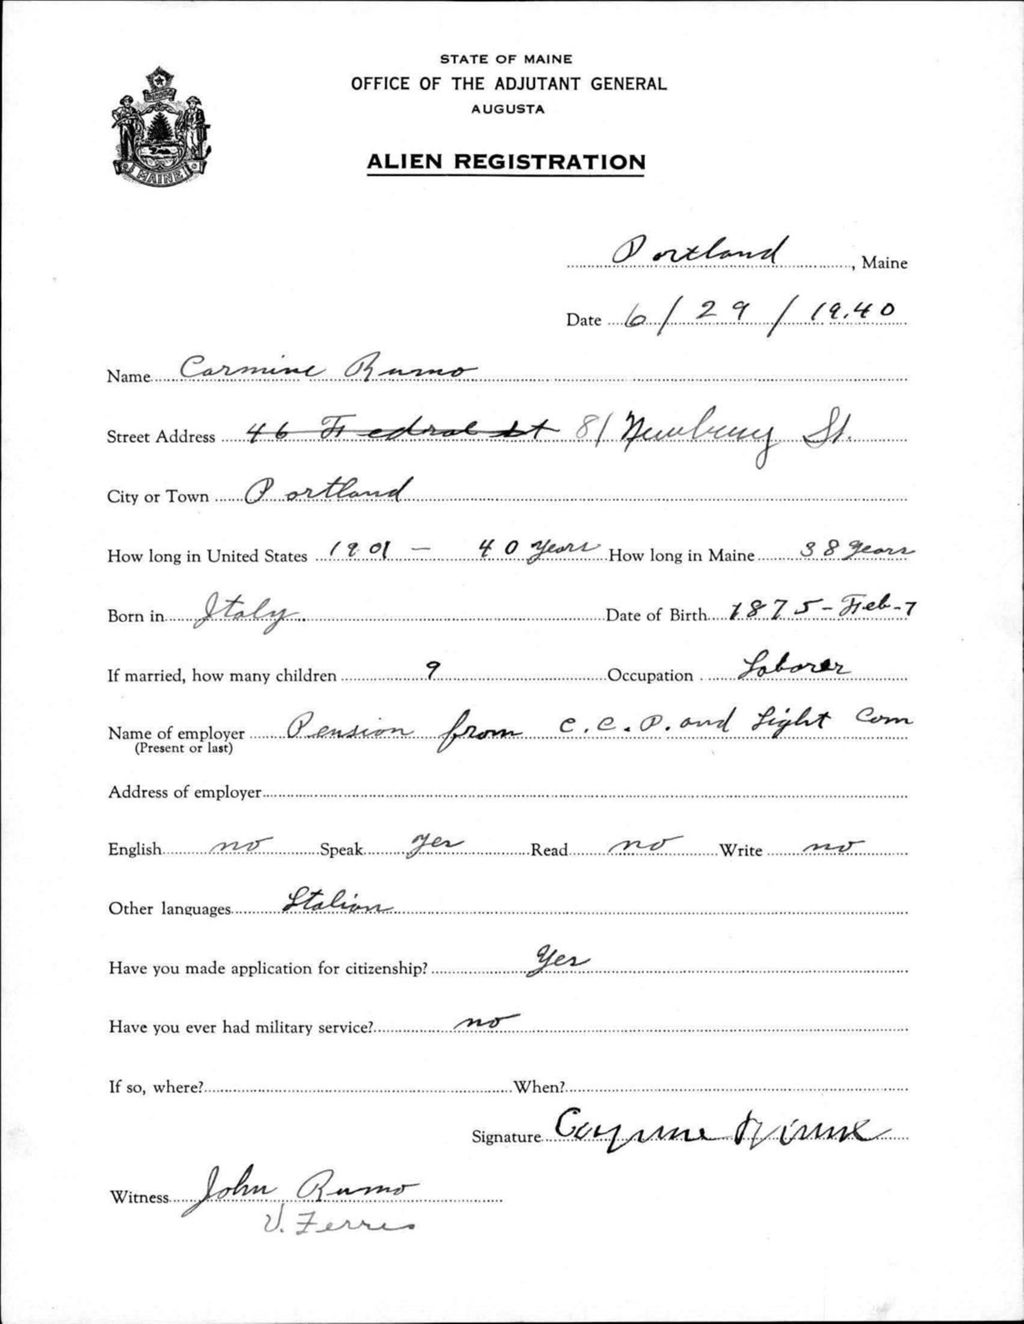 STATE OF MAINE
OFFICE OF THE ADJUTANT GENERAL
AUGUSTA
MAINE
ALIEN REGISTRATION
Portland, Maine
Date 6/29/1940
Name Carmine Rumo
Street Address 46 Federal St 81 Newbury St.
City or Town Portland
How long in United States 1901 – 40 years How long in Maine 38 years
Born in Italy Date of Birth 1875-Feb-7
If married, how many children 9 Occupation Laborer
Name of employer Pension from C.C.P. and Light Com
(Present or last)
Address of employer
English no Speak yes Read no Write no
Other languages Italian
Have you made application for citizenship? Yes
Have you ever had military service? no
If so, where? When?
Signature
Witness John Rumo
V. Ferres